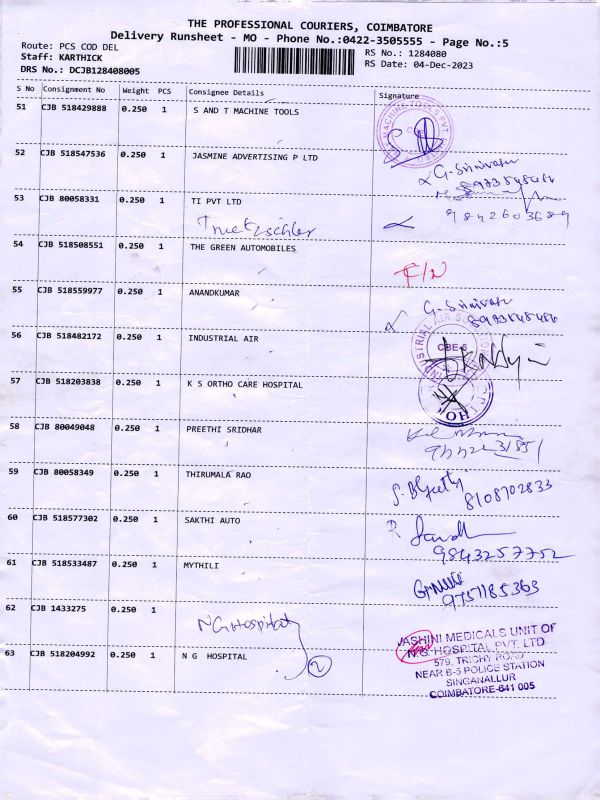 THE PROFESSIONAL COURIERS, COIMBATORE
Delivery Runsheet - MO - Phone No.:0422-3505555 - Page No.:5
Route: PCS COD DEL
RS No.: 1284080
Staff: KARTHICK
RS Date: 04-Dec-2023
DRS No.: DCJB128408005
S No Consignment No Weight PCS Consignee Details Signature
51 CJB 518429888 0.250 1 S AND T MACHINE TOOLS
52 CJB 518547536 0.250 1 JASMINE ADVERTISING P LTD
G. Srinivasan
8973548456
53 CJB 80058331 0.250 1 TI PVT LTD
9842603689
54 CJB 518508551 0.250 1 THE GREEN AUTOMOBILES
F/N
55 CJB 518559977 0.250 1 ANANDKUMAR
G. Srinivasan
8973548456
56 CJB 518482172 0.250 1 INDUSTRIAL AIR
CBE-6
57 CJB 518203838 0.250 1 K S ORTHO CARE HOSPITAL
58 CJB 80049048 0.250 1 PREETHI SRIDHAR
59 CJB 80058349 0.250 1 THIRUMALA RAO
8108702833
60 CJB 518577302 0.250 1 SAKTHI AUTO
9843257752
61 CJB 518533487 0.250 1 MYTHILI
9751185363
62 CJB 1433275 0.250 1
NG Hospital
63 CJB 518204992 0.250 1 N G HOSPITAL
2
JASHINI MEDICALS UNIT OF
N.G. HOSPITAL PVT. LTD
579, TRICHY ROAD
NEAR B-5 POLICE STATION
SINGANALLUR
COIMBATORE-641 005